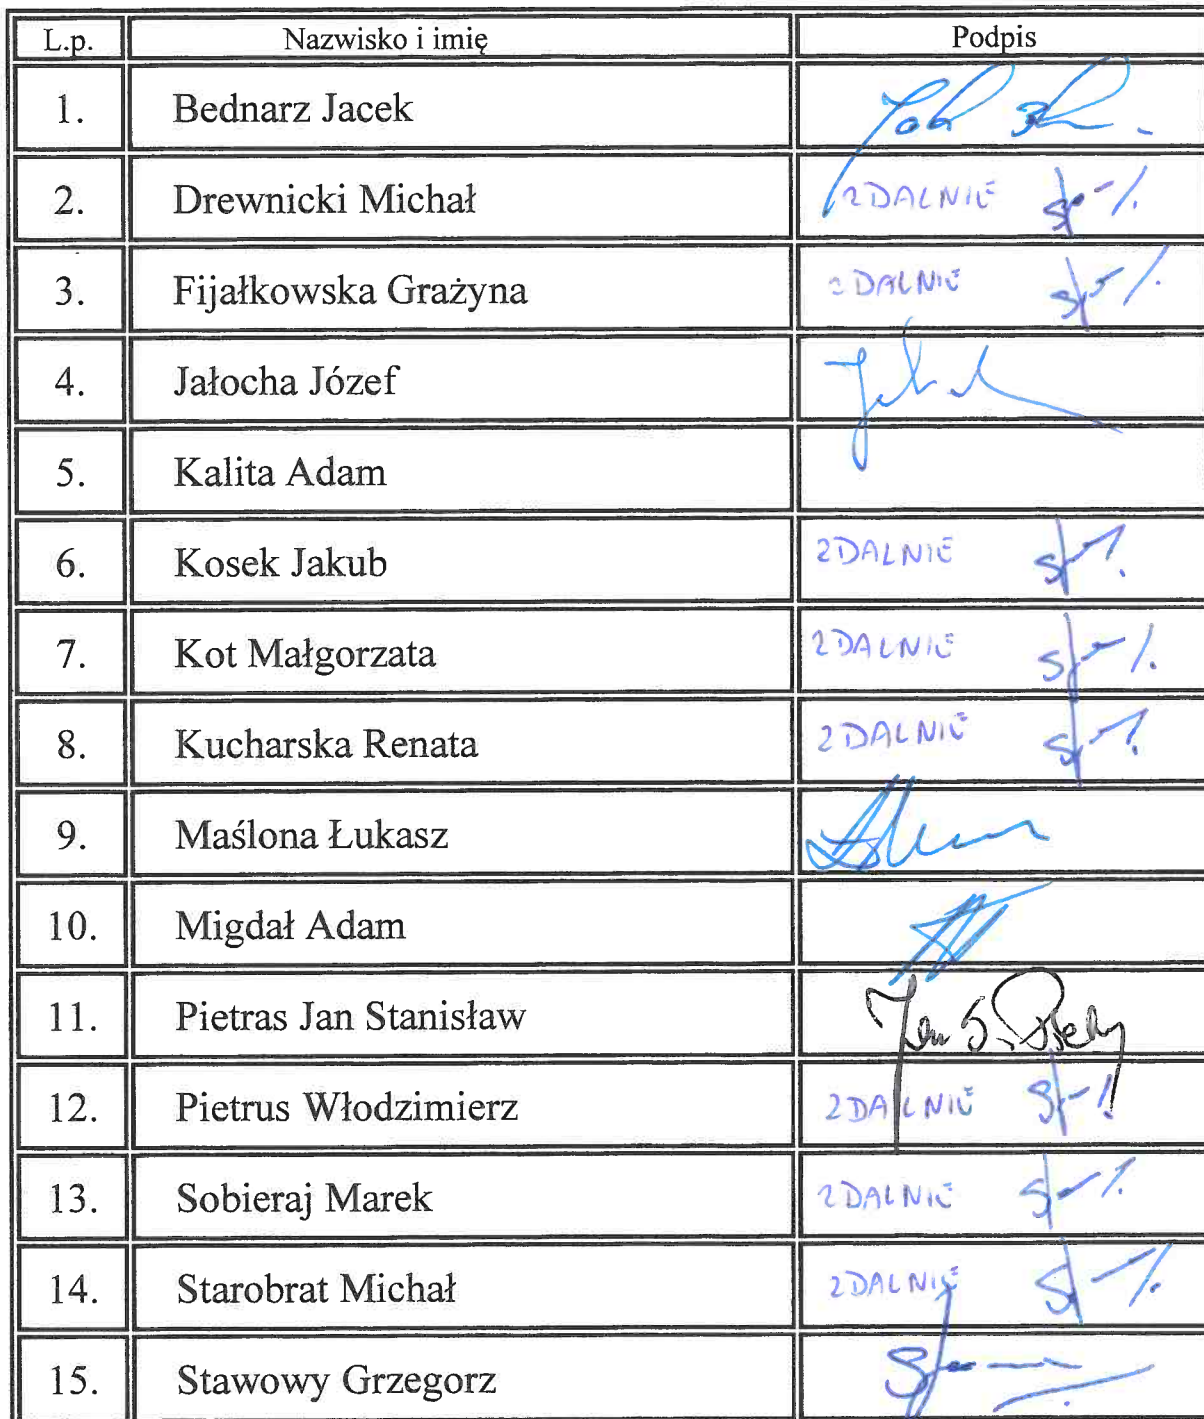 L.p. Nazwisko i imię Podpis
1. Bednarz Jacek
2. Drewnicki Michał ZDALNIE
3. Fijałkowska Grażyna ZDALNIE
4. Jałocha Józef
5. Kalita Adam
6. Kosek Jakub ZDALNIE
7. Kot Małgorzata ZDALNIE
8. Kucharska Renata ZDALNIE
9. Maślona Łukasz
10. Migdał Adam
11. Pietras Jan Stanisław Jan S.
12. Pietrus Włodzimierz ZDALNIE
13. Sobieraj Marek ZDALNIE
14. Starobrat Michał ZDALNIE
15. Stawowy Grzegorz